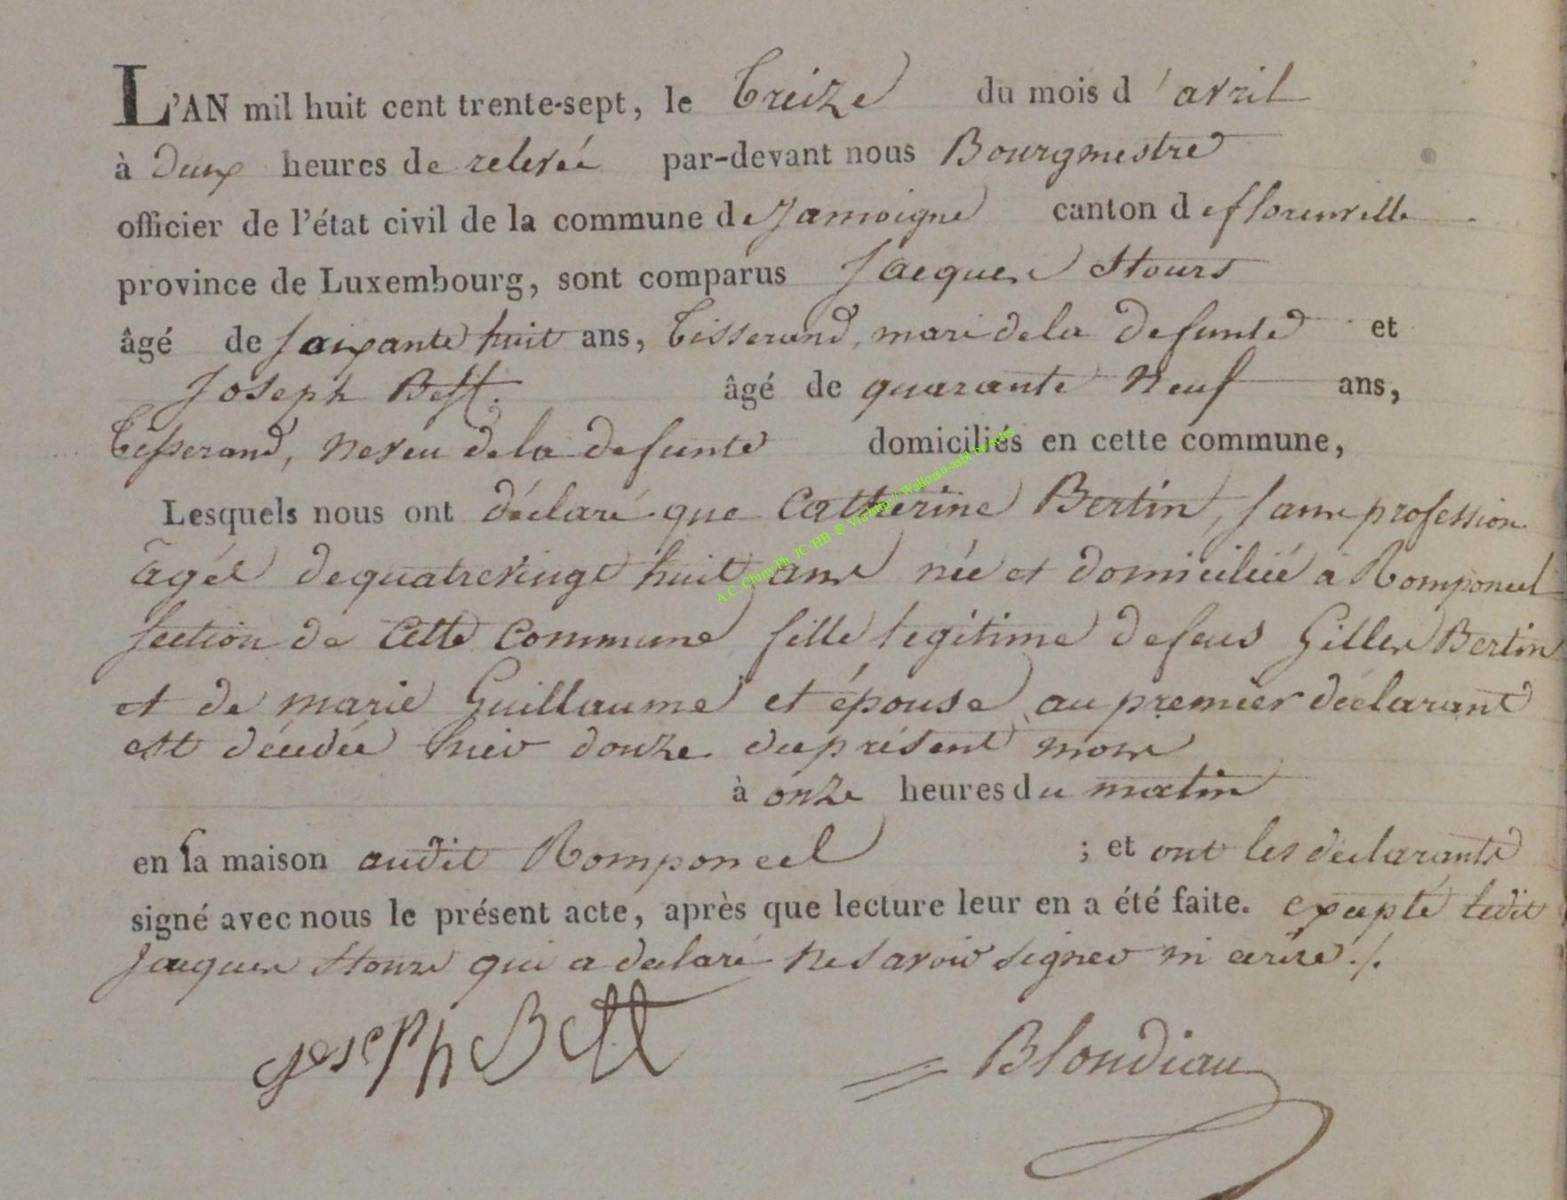 L'AN mil huit cent trente-sept, le treize du mois d'avril
à deux heures de relevée par-devant nous Bourgmestre
officier de l'état civil de la commune de Jamoigne canton de florenville
province de Luxembourg, sont comparus Jacques Stours
âgé de soixante huit ans, tisserand, mari de la defunte et
Joseph Bett. âgé de quarante neuf ans,
tisserand, neveu de la defunte domiciliés en cette commune,
Lesquels nous ont déclaré que Catherine Bertin, sans profession
âgée de quatrevingt huit ans née et domiciliée à Romponcel
section de cette commune fille legitime de feus Gilles Bertin
et de marie Guillaume et épouse au premier déclarant
est décédée hier douze du présent mois
à onze heures du matin
en sa maison audit Romponcel ; et ont les déclarants
signé avec nous le présent acte, après que lecture leur en a été faite. excepté ledit
Jacques Stours qui a declaré ne savoir signer ni ecrire ./.
joseph Bett Blondiau